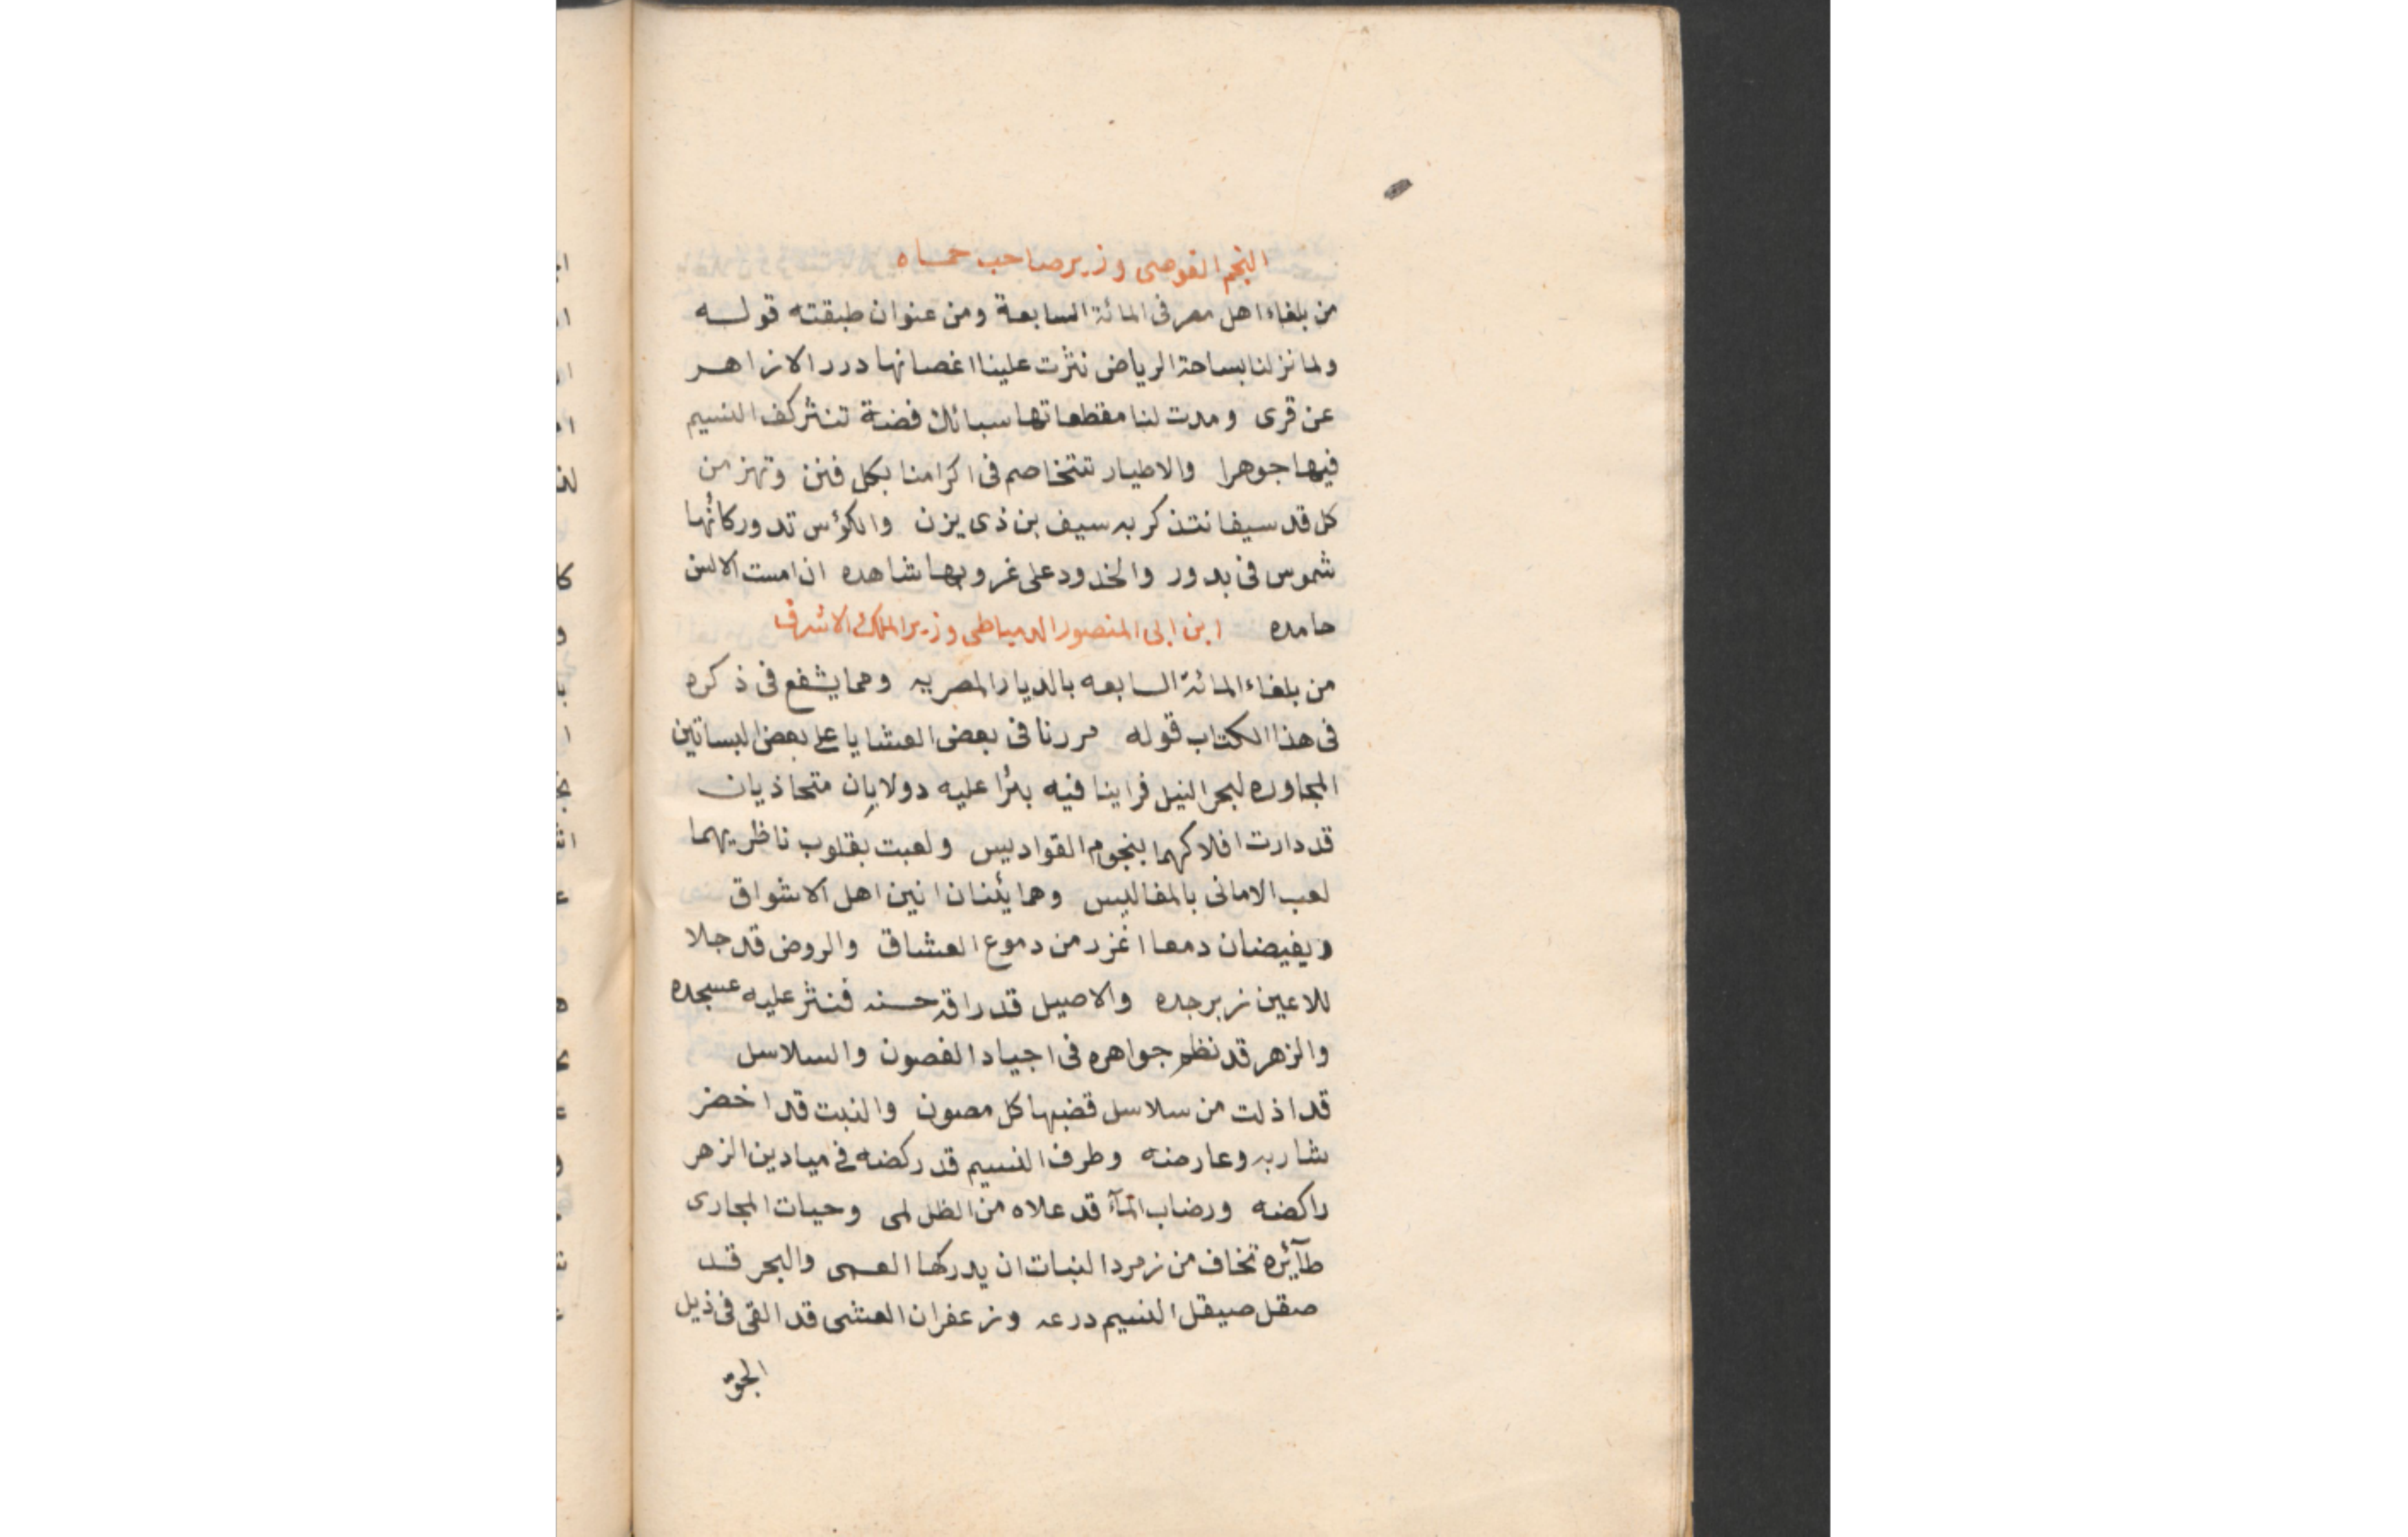 النجم القوصى وزير صاحب حماه
من بلغاء اهل مصر فى المائة السابعة ومن عنوان طبقته قوله
ولما نزلنا بساحة الرياض نثرت علينا اغصانها درر الازاهر
عن قرى ومدت لنا مقطعاتها سبائك فضة تنثر كف النسيم
فيها جوهرا والاطيار تتخاصم فى اكرامنا بكل فنن وتهز من
كل قد سيفا نتذكر به سيف بن ذى يزن والكؤس تدور كأنها
شموس فى بدور والخدود على غروبها شاهده ان امست الالسن
حامده ابن ابى المنصور الدمياطى وزير الملك الاشرف
من بلغاء المائة السابعه بالديار المصريه ومما يشفع فى ذكره
فى هذا الكتاب قوله مررنا فى بعض العشايا على بعض البساتين
المجاوره لبحر النيل فراينا فيه بئرا عليه دولابان متحاذيان
قد دارت افلاكهما بنجوم القواديس ولعبت بقلوب ناظريهما
لعب الامانى بالمفاليس وهما يئنان انين اهل الاشواق
ويفيضان دمعا اغزر من دموع العشاق والروض قد جلا
للاعين زبرجده والاصيل قد راقه حسنه فنثر عليه عسجده
والزهر قد نظم جواهره فى اجياد الغصون والسلاسل
قد اذلت من سلاسل قضبها كل مصون والنبت قد اخضر
شاربه وعارضه وطرف النسيم قد ركضه فى ميادين الزهر
راكضه ورضاب المآء قد علاه من الظل لمى وحيات المجارى
طآئره تخاف من زمرد النبات ان يدركها العمى والبحر قد
صقل صيقل النسيم درعه وزعفران العشى قد القى فى ذيل
الجوّ